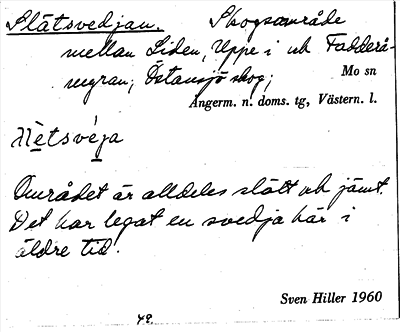 Slätsvedjan. Skogsområde
mellan Liden, Uppe i och Fadderå-
myran; Östansjö skog;
Mo sn
Ångerm. n. doms. tg, Västern. l.
Området är alldeles slätt och jämt.
Det har legat en svedja här i
äldre tid.
Sven Hiller 1960
42